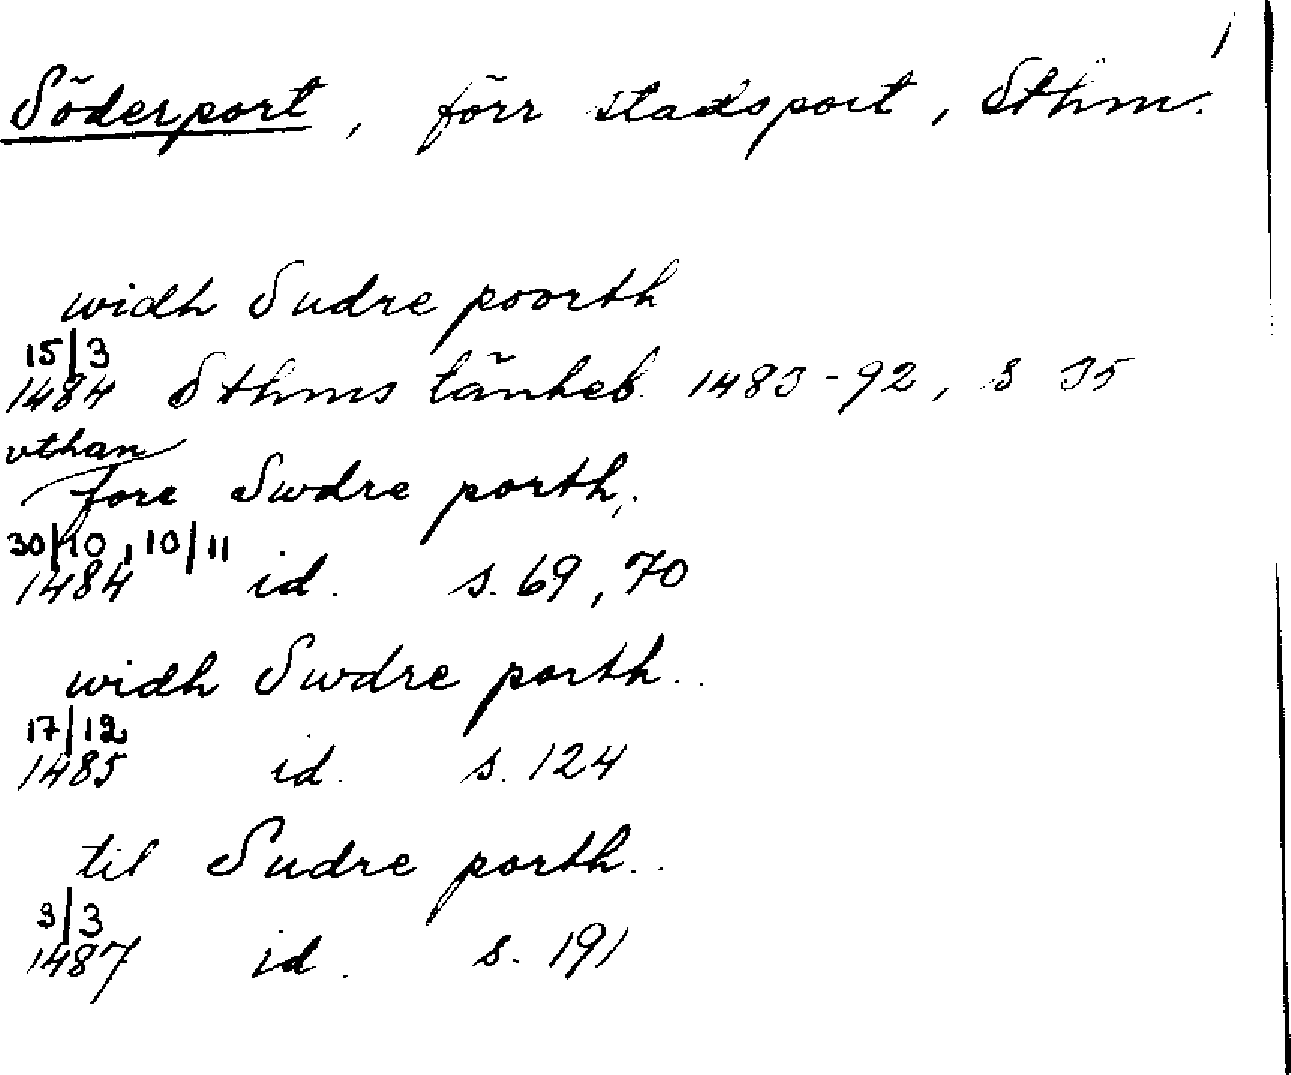 1
Söderport, förr stadsport, Sthm.
widh Sudre poorth
15/3
1484 Sthms tänkeb. 1483-92, s 35
vthan
fore Swdre porth,
30/10, 10/11
1484 id. s. 69, 70
widh Swdre porth..
17/12
1485 id. s. 124
til Sudre porth..
3/3
1487 id. s. 191